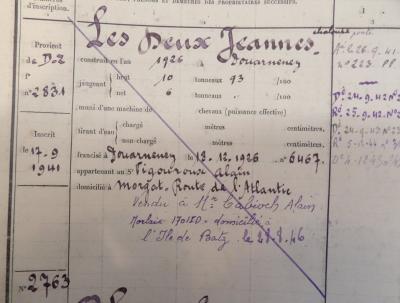 d'inscription.
Les Deux Jeannes. chaloupe pontée
Provient
de D-2
f°
n° 2831
construit en l'an 1926 à Douarnenez
jaugeant
brut 10 tonneaux 93 /100
net 6 tonneaux /100
muni d'une machine de chevaux (puissance effective)
tirant d'eau
chargé mètres centimètres.
non-chargé mètres centimètres.
Inscrit
le 17-9
1941
francisé à Douarnenez le 13.12.1926 n° 6467.
appartenant au Sr Vigouroux Alain
domicilié à Morgat. Route de l'Atlantic
Vendu à Mr Cabioch Alain
Morlaix domicilié à
l'Ile de Batz le 28.8.46
N° 2763
26.9.41
n° 223 PP
D° 24-9-42 N° 2
R° 25.9.42 N° 2
D° 24-9-42